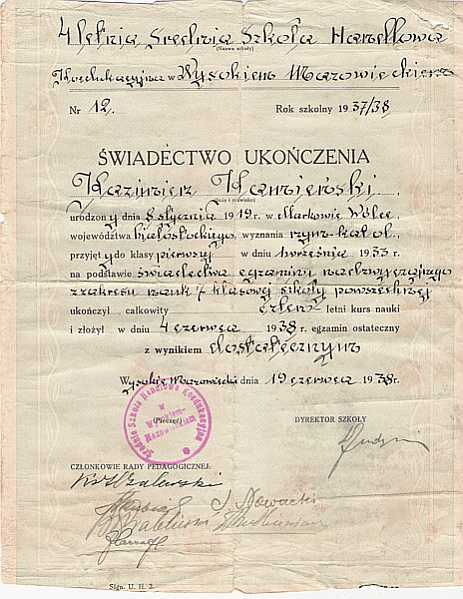 4letnia Średnia Szkoła Handlowa
(Nazwa szkoły)
Koedukacyjna w Wysokiem Mazowieckiem
Nr 12. Rok szkolny 1937/38
ŚWIADECTWO UKOŃCZENIA
Kazimierz
(Imię i nazwisko)
urodzony dnia 8 stycznia 1919 r. w Markowie Wólce,
województwa białostockiego, wyznania rzym-kat ol.
przyjęty do klasy pierwszej w dniu 1 września 1933
na podstawie świadectwa egzaminu nadzwyczajnego
z zakresu nauk 7 klasowej szkoły powszechnej
ukończył całkowity czterо letni kurs nauki
i złożył w dniu 4 czerwca 1938 r. egzamin ostateczny
z wynikiem dostatecznym
Wysokie Mazowieckie dnia 19 czerwca 1938 r.
(Pieczęć) DYREKTOR SZKOŁY
Średnia Szkoła Handlowa Koedukacyjna
w
Wysokiem-
Mazowieckiem
CZŁONKOWIE RADY PEDAGOGICZNEJ
J. Nowacki
Sign. U. H. 2.